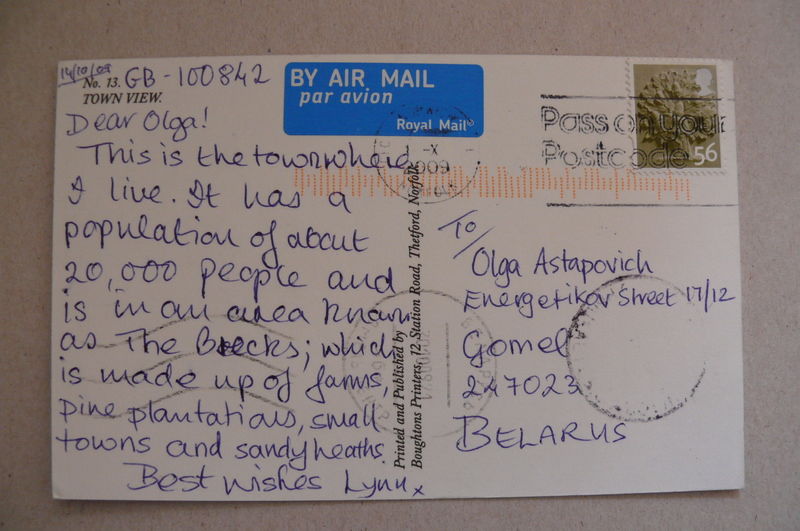 14/10/09
No. 13. GB-100842
TOWN VIEW.
BY AIR MAIL
par avion
Royal Mail®
Pass on your
Postcode
56
-X
2009
Dear Olga!
This is the town where
I live. It has a
population of about
20,000 people and
is in an area known
as The Brecks; which
is made up of farms,
pine plantations, small
towns and sandy heaths.
Best wishes Lynn x
Printed and Published by
Boughtons Printers, 12 Station Road, Thetford, Norfolk
To/
Olga Astapovich
Energetikov Street 17/12
Gomel
247023
BELARUS